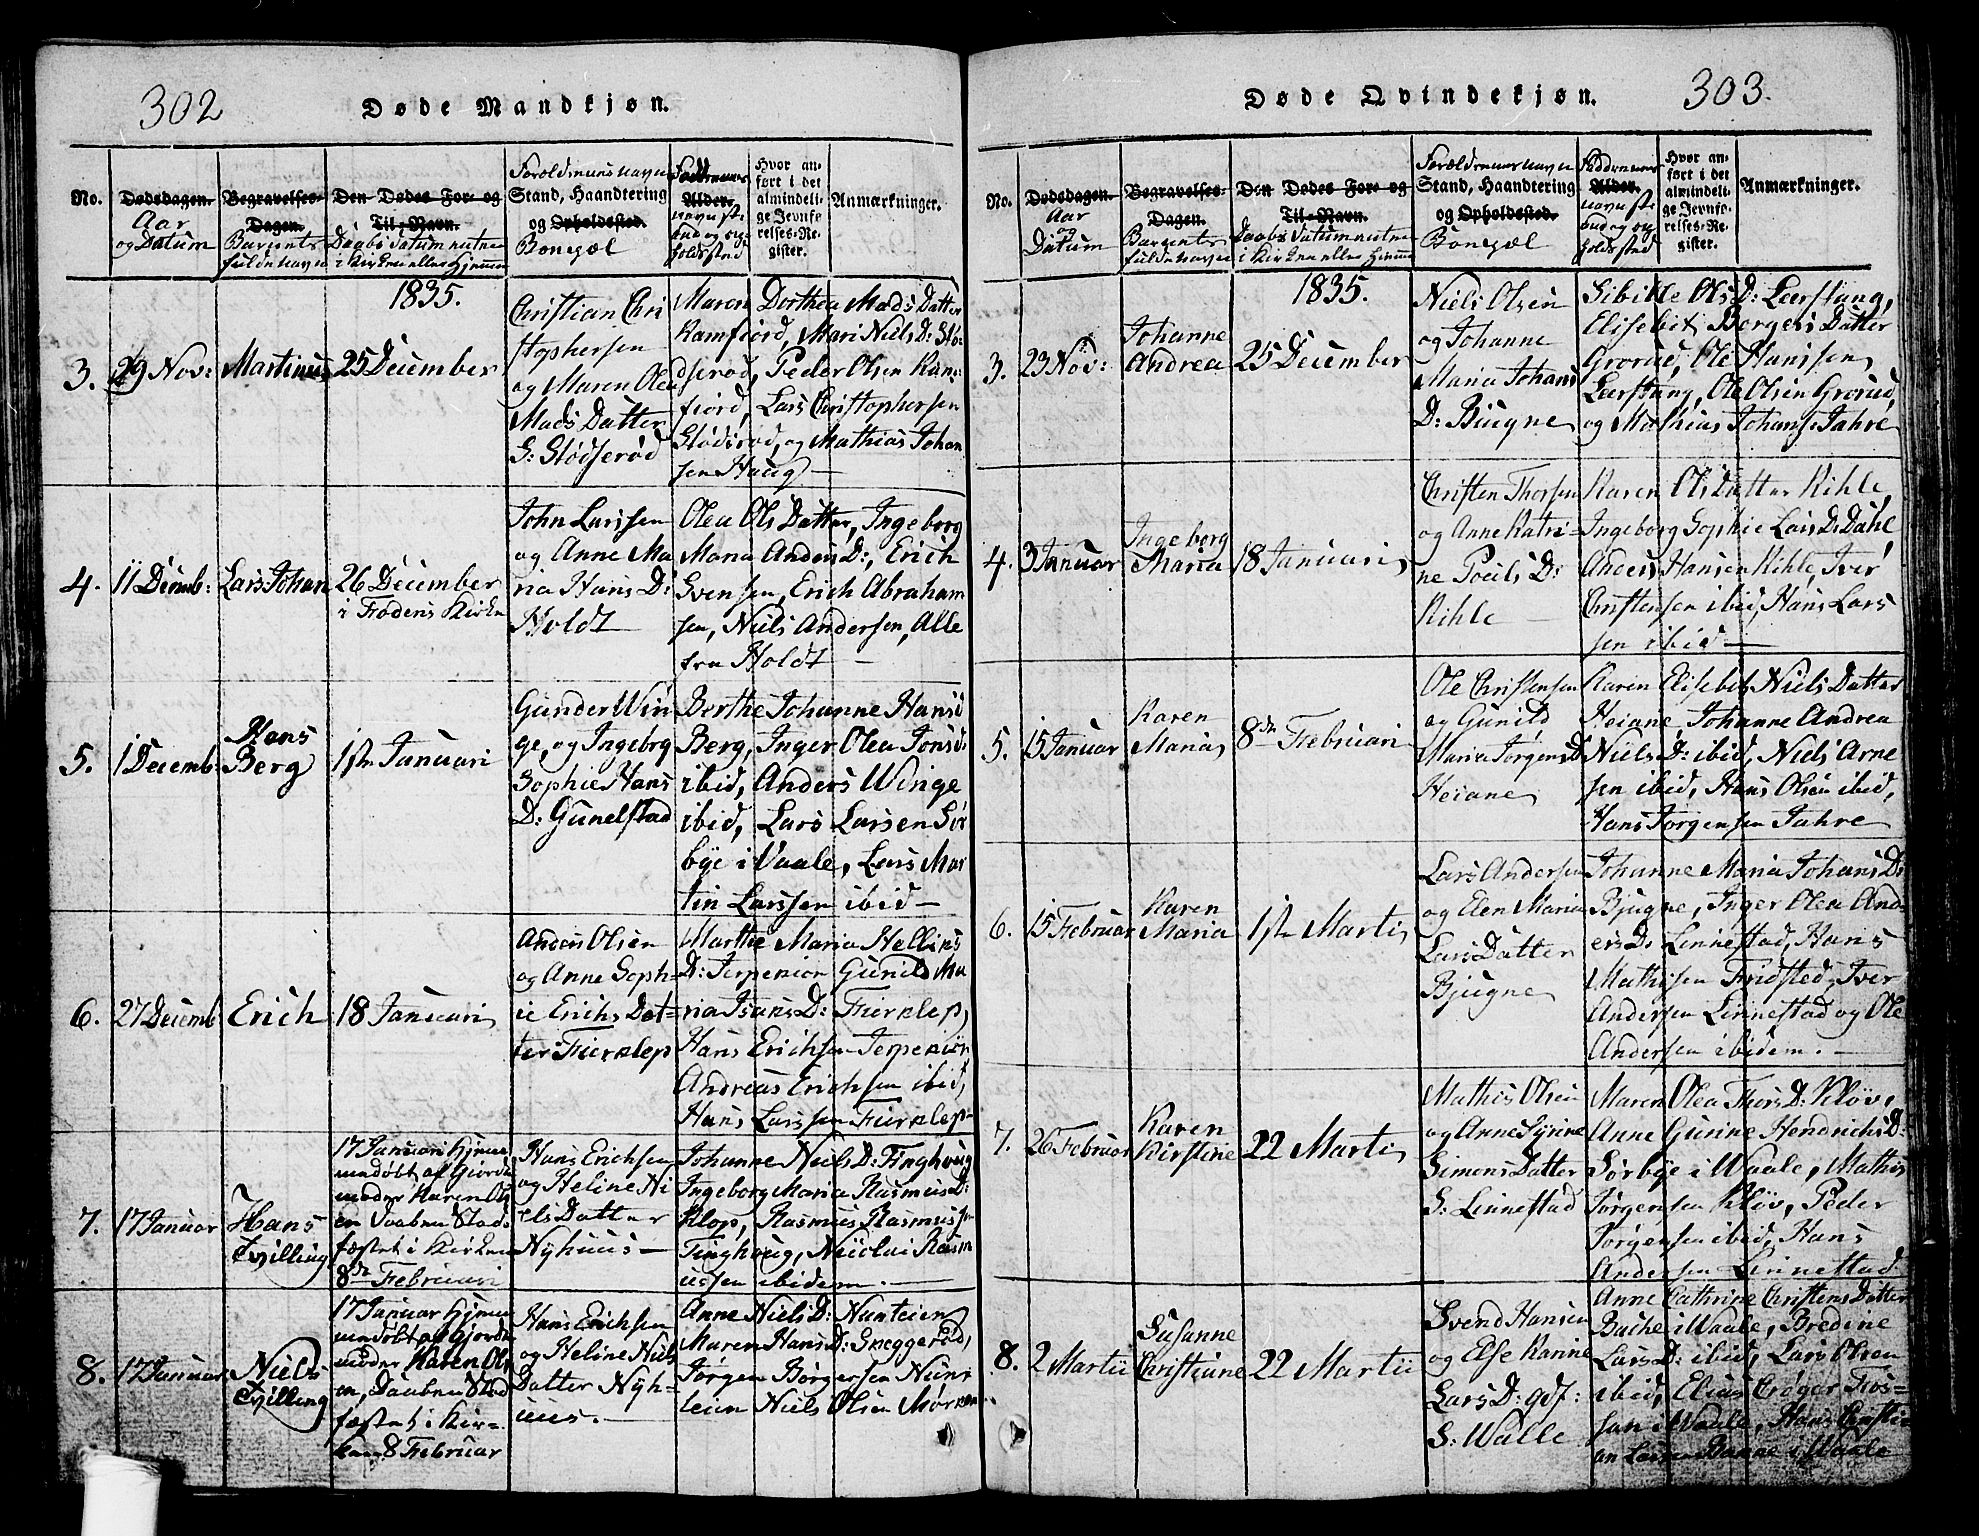 302
Døde Mandkjøn.
No.
Dødsdagen.
Aar
og Datum
Begravelses-
Dagen.
Barnets
fulde Navn
Den Dødes For- og
Til-Navn.
Daabs Datum
i Kirken eller Hjemme
Forældrenes Navn
Stand, Haandtering
og Opholdsted.
Boepæl
Faddernes
Alder.
Navn
og Op-
holdssted
Hvor an-
ført i det
almindeli-
ge Jevnfø-
relses-Re-
gister.
Anmærkninger.
1835.
3.
29 Nov:
Martinus
25 December
Christian Chri
stophersen
og Maren Olea
Mads Datter
G: Stødserød
Maren Dorthea Mads Datter
Ramfjord, Mari Niels D: Stø-
dserød, Peder Olsen Ram-
fiord, Lars Christophersen
Stødsrød, og Mathias Johan
sen Haug
4.
11 Decmb:
Lars Johan
26 December
i Frodens Kirke
John Larssen
og Anne Ma
ria Hans D:
Holdt
Olea Ols Datter, Ingeborg
Maria Anders D:, Erich
Svensen, Erich Abraham
sen, Niels Andersen, Alle
fra Holdt
5.
1 Decemb:
Hans
Berg
1ste Januari
Gunder Win
ge, og Ingeborg
Sophie Hans
D: Gunelstad
Berthe Johanne Hansd
Berg, Inger Olea Jonsd:
ibid, Anders Winge
ibid, Lars Larsen Sør
bye i Vaale, Lars Mar
tin Larssen ibid
6.
27 Decemb
Erich
18 Januari
Anders Olsen
og Anne Soph-
ie Erichs Dat-
ter Fierklep
Marthe Maria Hellins
D: Terpenior Gunild Ma
ria Isans D: Fierklep,
Hans Erichsen Terpeniör
Andreas Erichsen ibid,
Hans Larssen Fierklep
7.
17 Januar
Hans
Tvilling
17 Januari Hjem
mendøbt af Giorde
moder Karen Ols
en Daaben Stad-
fæstet i Kirken
8de Februari
Hans Erichsen
og Heline Ni
els Datter
Nyhuus
Johanne Niels D: Tinghoug
Ingeborg Maria Rasmus D:
Klop, Rasmus Rasmussen
Tinghoug, Nicolai Rasm
ussen ibidem.
8.
17 Januar
Niels
Tvilling
17 Januar Hjem
mendøbt af Gjorde
moder Karen Ols
en, Daaben Stad
fæstet i Kir-
ken 8 Februar
Hans Erichsen
og Heline Niels
Datter Nyh-
uus.
Anne Niels D: Nanteien
Maren Hans D: Sneggerød,
Jørgen Börgersen Nun-
teien Niels Olsen Mørken
303.
Døde Qvindekjøn.
No.
Dødsdagen.
Aar
og
Datum
Begravelses-
Dagen.
Barnets
fulde Navn
Den Dødes For- og
Til-Navn.
Daabs Datum
i Kirken eller Hjemme
Forældrenes Navn
Stand, Haandtering
og Opholdsted.
Boepæl
Faddernes
Alder.
Navn
og Op-
holdssted
Hvor an-
ført i det
almindeli-
ge Jevnfø-
relses-Re-
gister.
Anmærkninger.
1835.
3.
23 Nov:
Johanne
Andrea
25 December
Niels Olsen
og Johanne
Maria Johans
D: Buugne
Sibille Ols D: Leerstang,
Elisebet Bergers Datter
Grorud, Ole Hanssen
Leerstang, Ole Olsen Grorud,
og Mathias Johans: Jahre
4.
3 Januar
Ingeborg
Maria
18 Januari
Christen Thorsen
og Anne Katri-
ne Poels D:
Kihle
Karen Ols Datter Kihle,
Ingeborg Sophie Lars D: Dahl
Anders Hansen Kihle, Iver
Christensen ibid, Hans Lars
sen ibid
5.
15 Januar
Karen
Maria
8de Februari
Ole Christensen
og Gunild
Maria Jørgens D
Heiane
Karen Elisebet Niels Datter
Heiane Johanne Andrea
Niels D: ibid, Niels Arne
sen ibid, Hans Olsen ibid,
Hans Jørgensen Jahre
6.
15 Februar
Karen
Maria
1ste Marti
Lars Andersen
og Elen Maria
Lars Datter
Bjugne
Johanne Maria Johans D:
Bjugne, Inger Olea And-
ers D: Linnestad, Hans
Mathisen Fredsted, Iver
Andersen Linnestad og Ole
Andersen ibidem.
7.
26 Februar
Karen
Kirstine
22 Marti
Mathis Olsen
og Anne Syrine
Simons Datter
S: Linnestad
Maren Olea Thors D: Kløv,
Anne Gurine Hendrichs D:
Sørbye i Waale, Mathis
Jørgensen Kløv, Peder
Jørgensen ibid, Hans
Andersen Linnestad
8.
2 Martii
Susanne
Christiane
22 Martii
Svend Hansen
og Else Karine
Lars D: gdf:
S: Walle
Anne Cathrine Christens Datter
Bache i Waale, Bredine
Lars D: ibid, Lars Olsen
ibid, Elias Crøger Fos-
san i Waale, Hans Christi-
an Larsen Banne i Waale